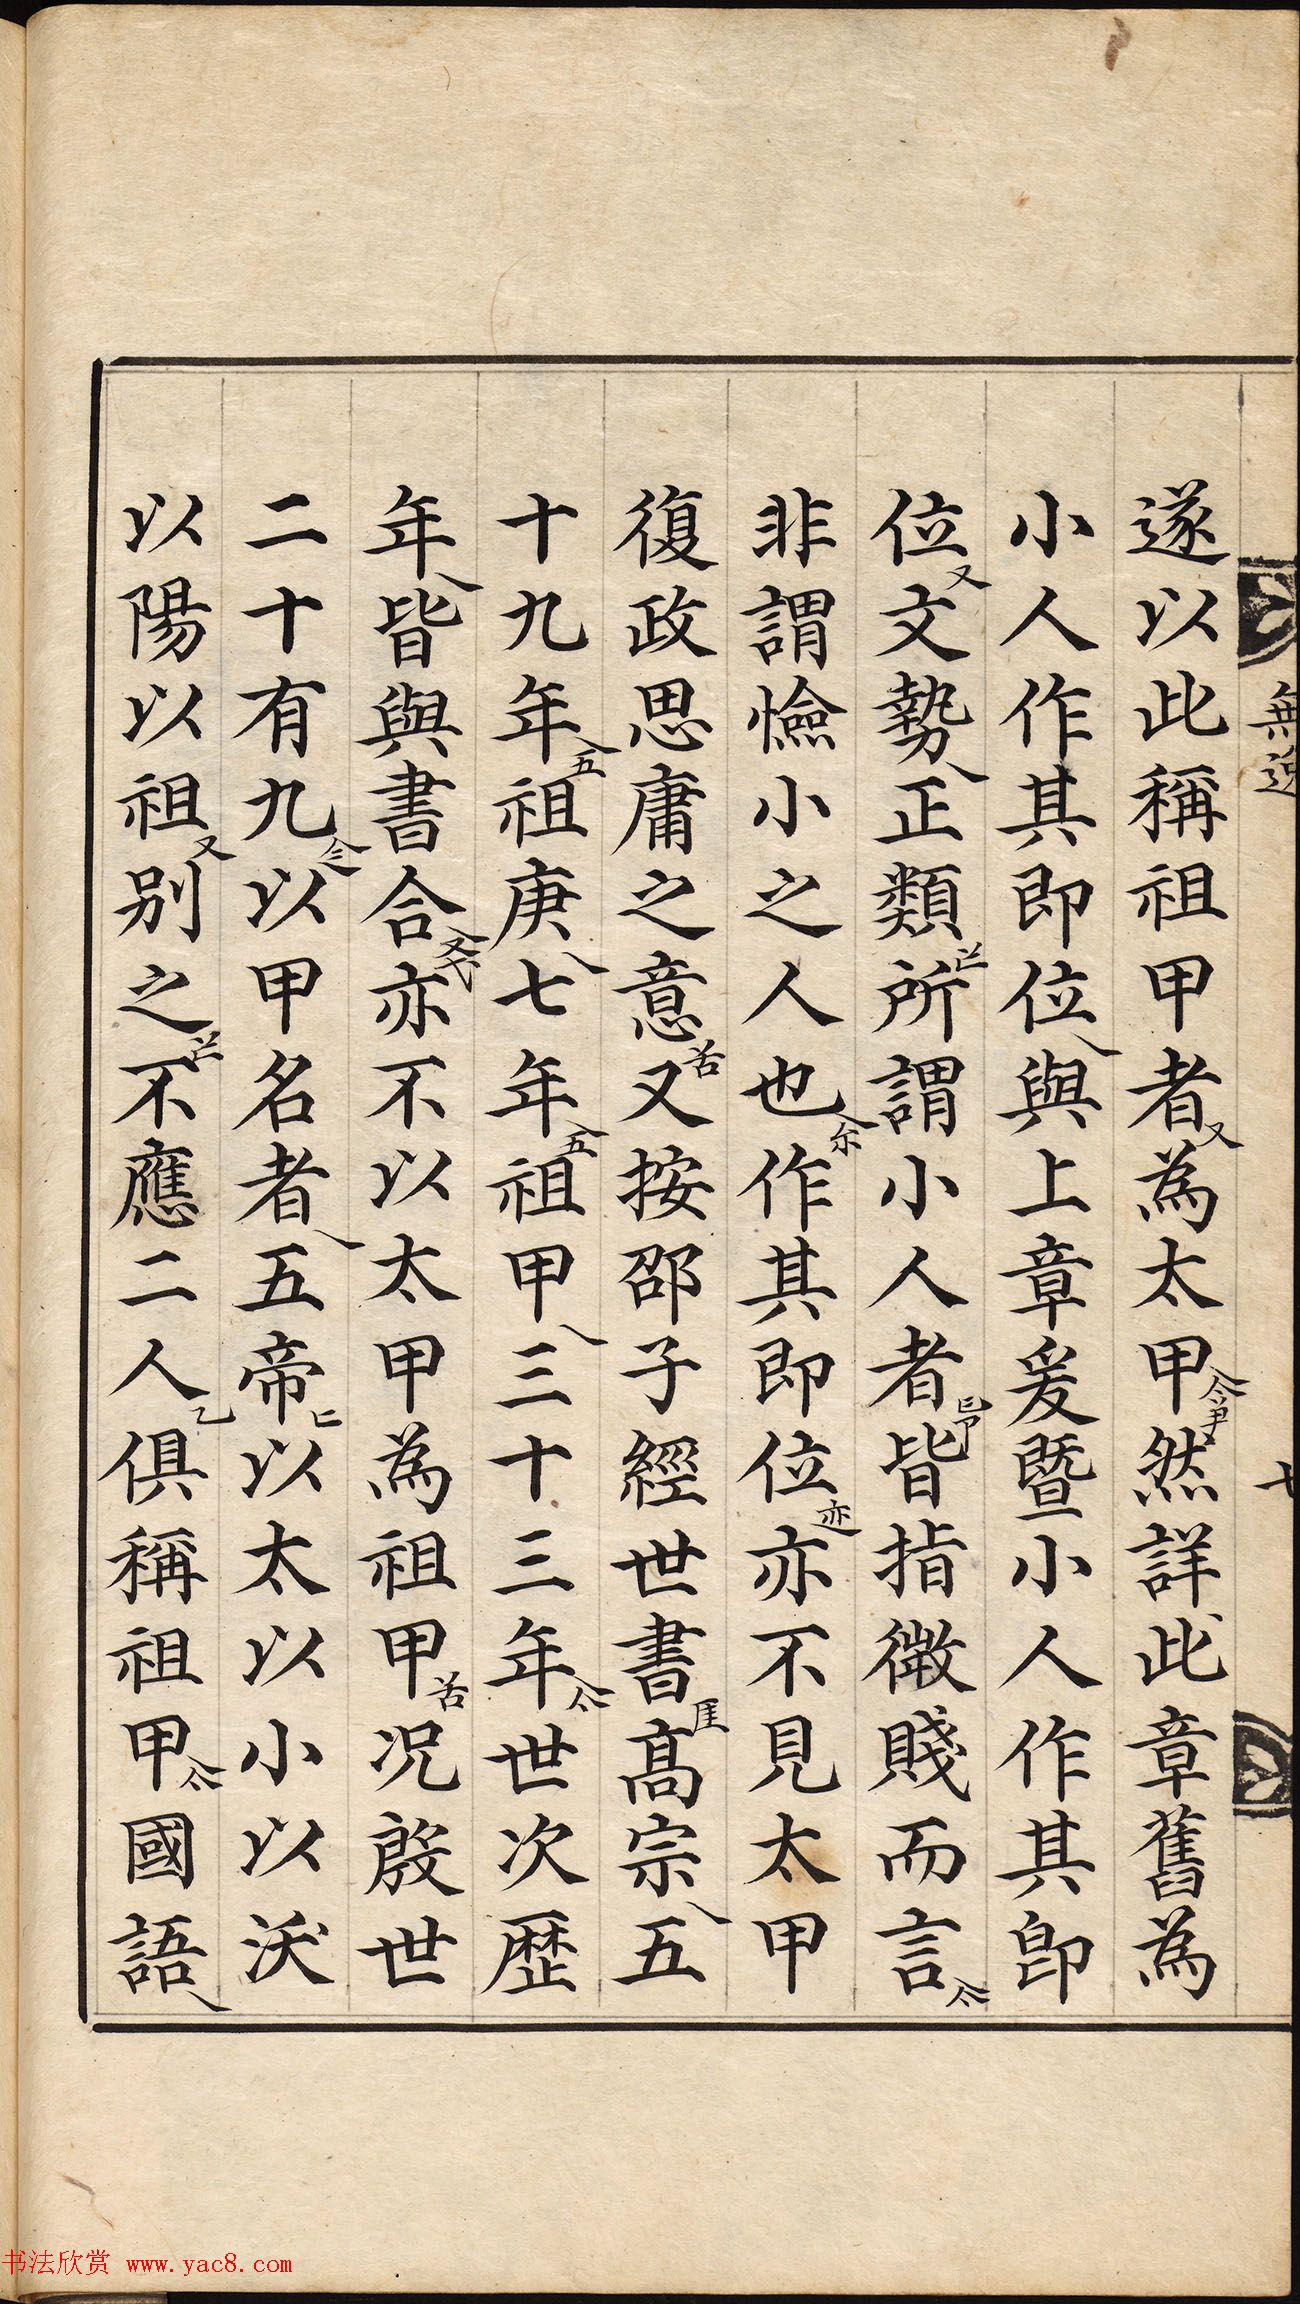 無逸
遂以此稱祖甲者為太甲然詳此章舊為
小人作其即位與上章爰暨小人作其卽
位文勢正類所謂小人者皆指微賤而言
非謂憸小之人也作其即位亦不見太甲
復政思庸之意又按邵子經世書高宗五
十九年祖庚七年祖甲三十三年世次歴
年皆與書合亦不以太甲為祖甲况殷世
二十有九以甲名者五帝以太以小以沃
以陽以祖别之不應二人俱稱祖甲國語
书法欣赏 www.yac8.com